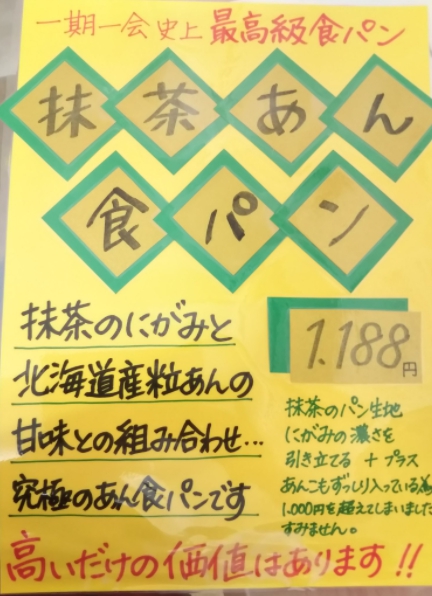 一期一会史上 最高級食パン
抹茶あん
食パン
抹茶のにがみと
北海道産粒あんの
甘味との組み合わせ…
究極のあん食パンです
1.188円
抹茶のパン生地
にがみの濃さを
引き立てる + プラス
あんこもずっしり入っている為
1,000円を超えてしまいました
すみません。
高いだけの価値はあります!!